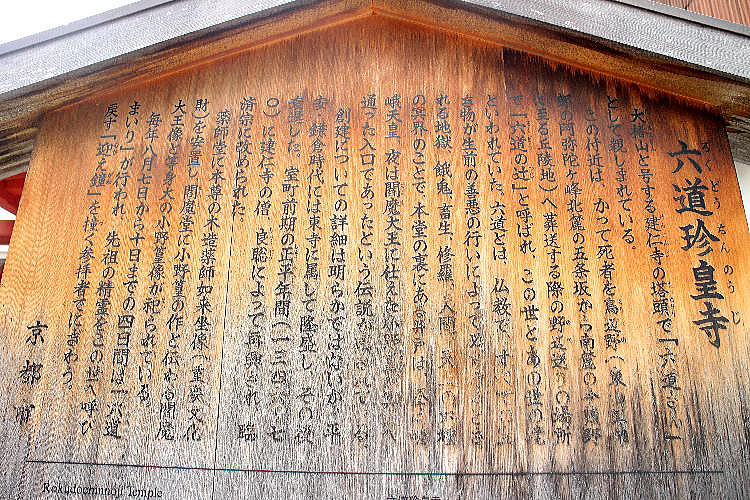 六道珍皇寺
ろくどうちんのうじ
大椿山と号する建仁寺の塔頭で「六道さん」
として親しまれている。
この付近は、かつて死者を鳥辺野
の阿弥陀ヶ峰北麓の五条坂から南麓の
至る丘陵地)へ葬送する際の野辺送りの場所
で「六道の辻」と呼ばれ、この世とあの世の
といわれていた。六道とは、仏教で、す
生物が生前の善悪の行いによって
れる地獄、餓鬼、畜生、修羅、人間、
の冥界のことで、本堂の裏にある井戸は、
峨天皇、夜は閻魔大王に仕えた
通った入口であったという伝説が
創建についての詳細は明らかではないが、平
安・鎌倉時代には東寺に属して隆盛し、その後
衰退した。室町前期の正平年間(一三
〇)に建仁寺の僧、良聡によって再興され、臨
済宗に改められた。
薬師堂に本尊の木造薬師如来坐像(重要文化
財)を安置し、閻魔堂に小野篁の作と伝わる閻魔
大王像と等身大の小野篁像が祀られている。
毎年八月七日から十日までの四日間は「六道
まいり」が行われ、先祖の精霊をこの世へ呼び
戻す「迎え鐘」を撞く参拝者でにぎわう。
京都市
Rokudochinnoji Temple